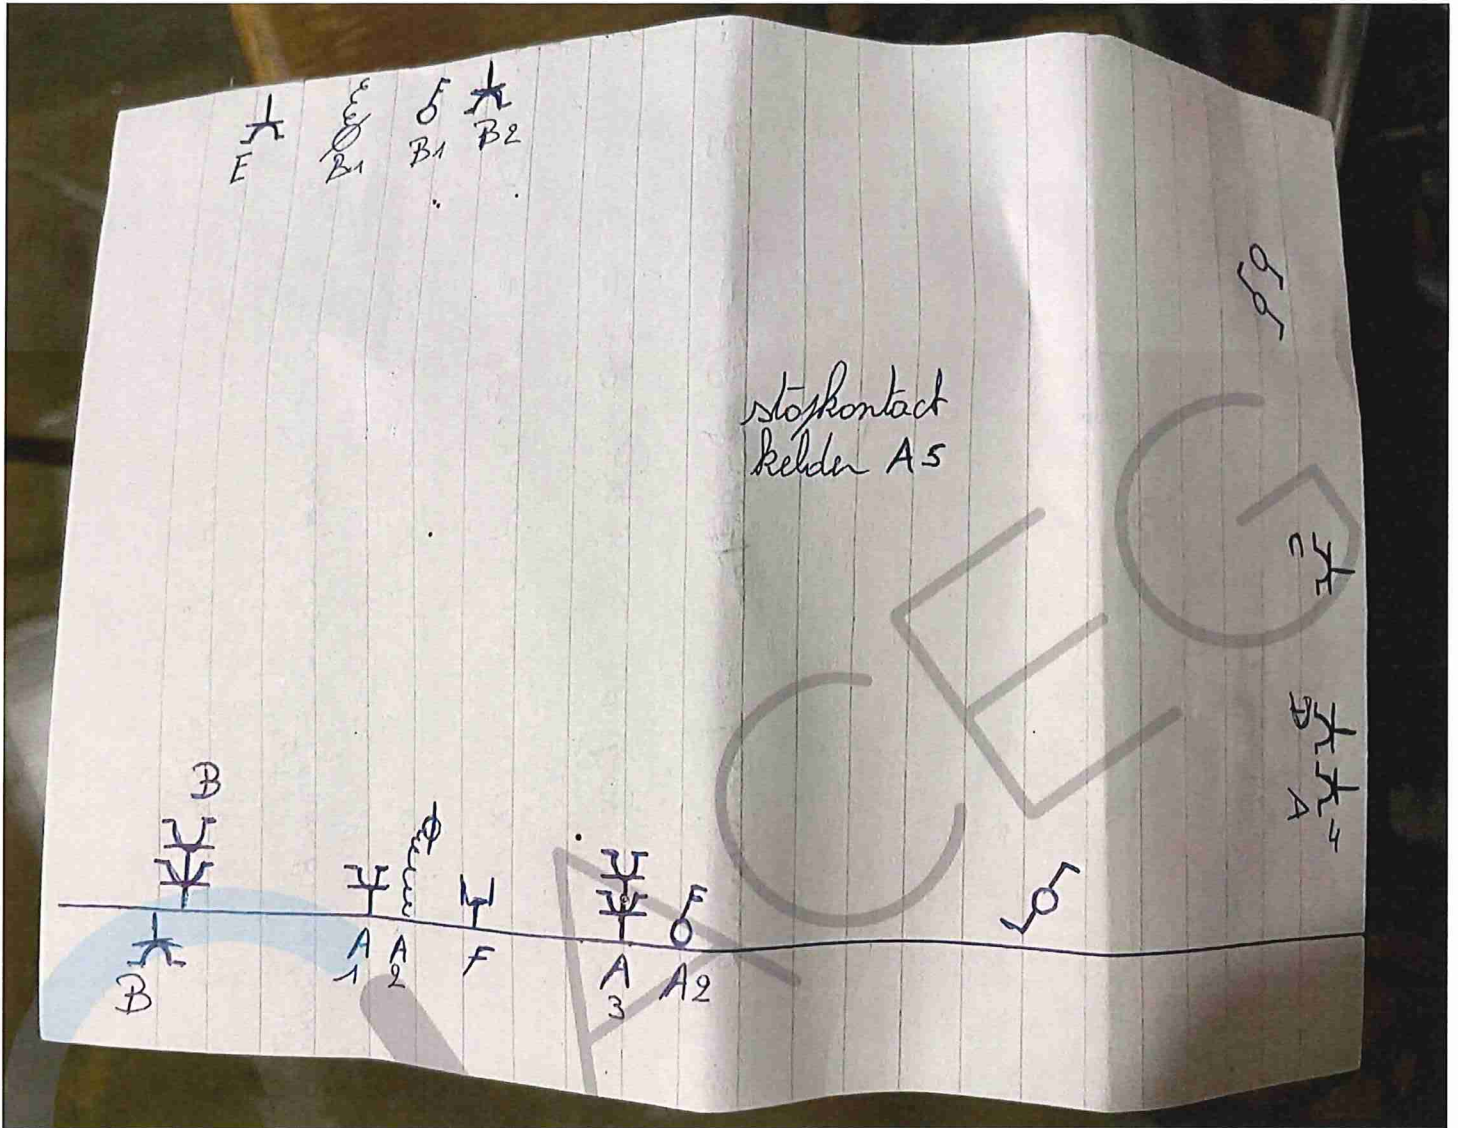 E
B1
B1
B2
stopkontact
kelder A5
C
D
A4
B
B
A
1
A
2
F
A
3
A2
ACEG